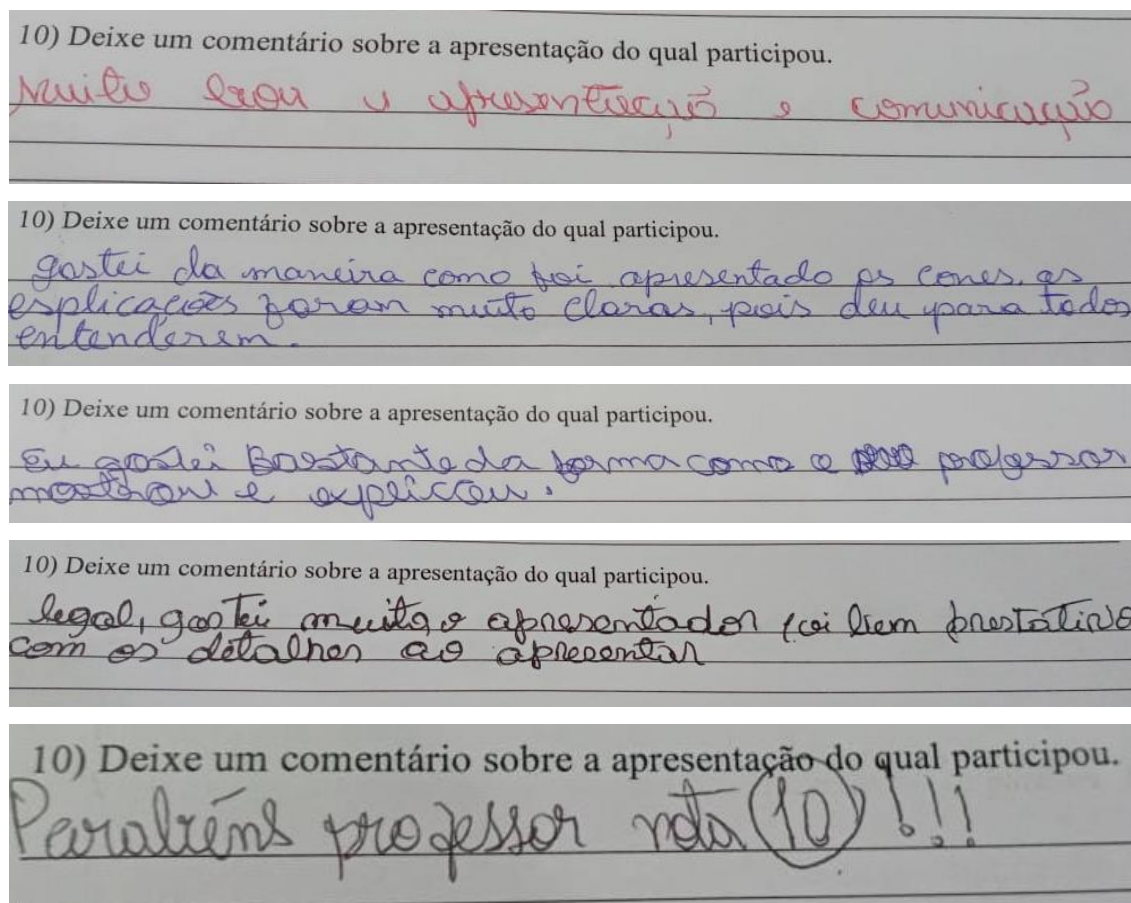 10) Deixe um comentário sobre a apresentação do qual participou.
Muito boa a apresentação e comunicação
10) Deixe um comentário sobre a apresentação do qual participou.
gostei da maneira como foi apresentado os cones, as
explicações foram muito claras, pois deu para todos
entenderem.
10) Deixe um comentário sobre a apresentação do qual participou.
Eu gostei Bastante da forma como o professor
mostrou e explicou.
10) Deixe um comentário sobre a apresentação do qual participou.
legal, gostei muito o apresentador foi bem prestativo
com os detalhes ao apresentar
10) Deixe um comentário sobre a apresentação do qual participou.
Parabéns professor nota (10)!!!